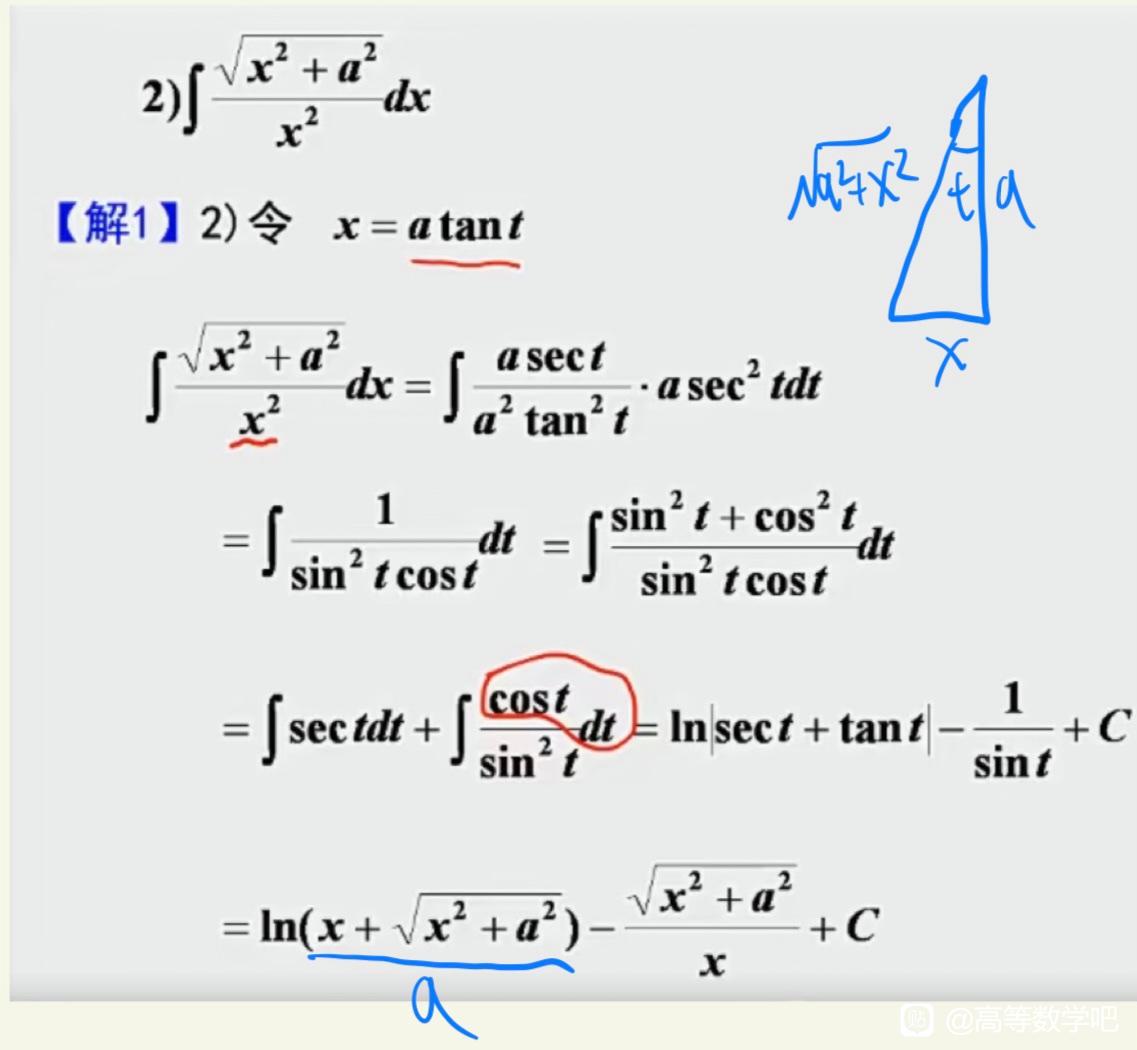 2)∫ √(x² + a²) / x² dx
【解1】2) 令 x = a tan t
√(a²+x²) t a
x
∫ √(x² + a²) / x² dx = ∫ a sec t / (a² tan² t) · a sec² tdt
= ∫ 1 / (sin² t cos t) dt = ∫ (sin² t + cos² t) / (sin² t cos t) dt
= ∫ sec tdt + ∫ cos t / sin² t dt = ln|sec t + tan t| − 1 / sin t + C
= ln(x + √(x² + a²)) − √(x² + a²) / x + C
a
贴 @高等数学吧